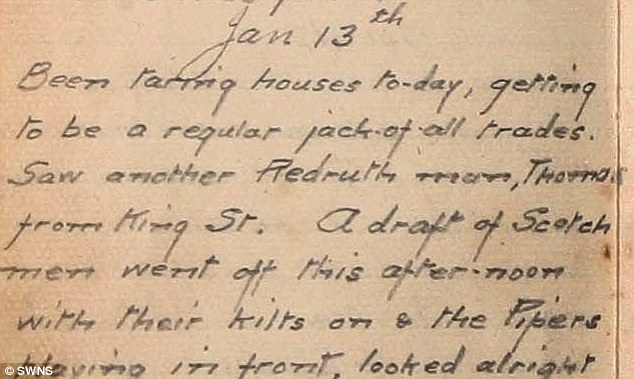 Jan 13th
Been taring houses to-day, getting
to be a regular jack-of-all trades.
Saw another Redruth man, Thomas
from King St. A draft of Scotch
men went off this after-noon
with their kilts on & the Pipers
playing in front, looked alright
© SWNS